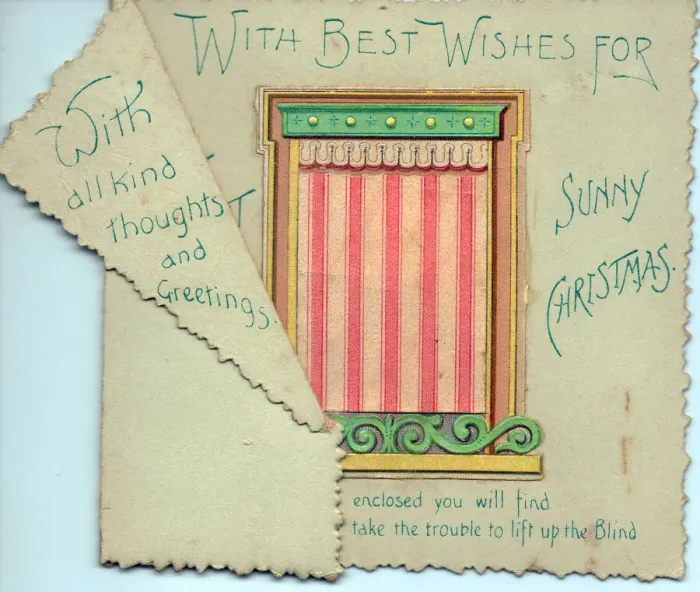 With Best Wishes for
With
all kind
thoughts
and
Greetings.
T
Sunny
Christmas.
enclosed you will find
take the trouble to lift up the Blind